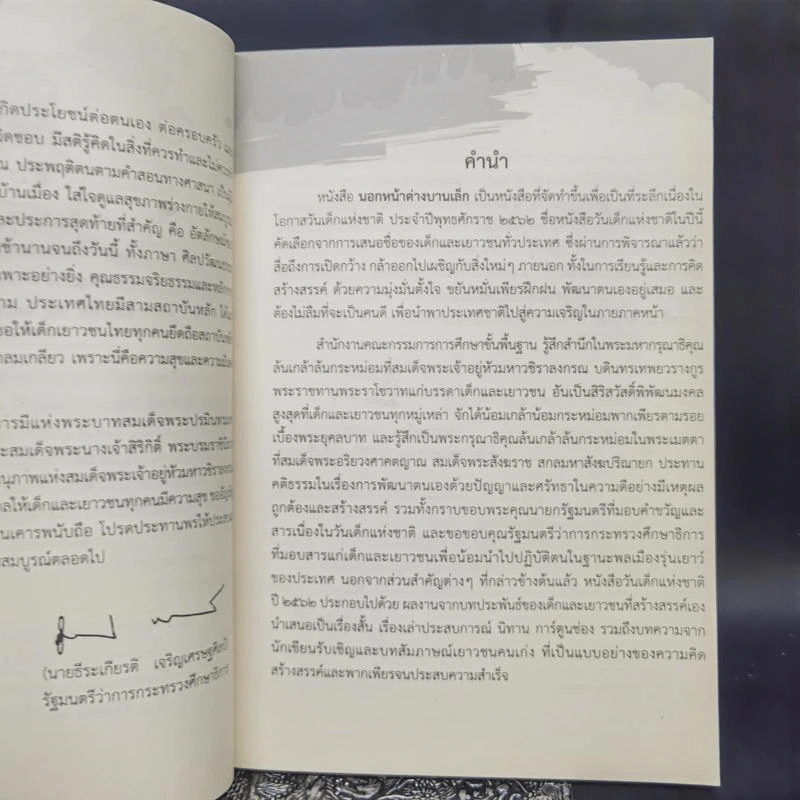 กิดประโยชน์ต่อตนเอง ต่อครอบครัว
มีสติรู้คิดในสิ่งที่ควรทำและไม่ควร
ประพฤติตนตามคำสอนทางศาสนา
บ้านเมือง ใส่ใจดูแลสุขภาพร่างกายให้สมบูรณ์
ละประการสุดท้ายที่สำคัญ คือ อัตลักษณ์
ช้านานจนถึงวันนี้ ทั้งภาษา ศิลปวัฒนธรรม
พาะอย่างยิ่ง คุณธรรมจริยธรรมและหลัก
าม ประเทศไทยมีสามสถาบันหลัก ได้แ
ขอให้เด็กเยาวชนไทยทุกคนยึดถือสถาบันหลัก
กลมเกลียว เพราะนี่คือความสุขและความ
ารมีแห่งพระบาทสมเด็จพระปรมินทร
ะสมเด็จพระนางเจ้าสิริกิติ์ พระบรมราชินี
นุภาพแห่งสมเด็จพระเจ้าอยู่หัวมหาวชิราลงกรณ
ลให้เด็กและเยาวชนทุกคนมีความสุข
นเคารพนับถือ โปรดประทานพรให้ประสบ
สมบูรณ์ตลอดไป
(นายธีระเกียรติ เจริญเศรษฐศิลป์)
รัฐมนตรีว่าการกระทรวงศึกษาธิการ
คำนำ
หนังสือ นอกหน้าต่างบานเล็ก เป็นหนังสือที่จัดทำขึ้นเพื่อเป็นที่ระลึกเนื่องใน
โอกาสวันเด็กแห่งชาติ ประจำปีพุทธศักราช ๒๕๖๒ ชื่อหนังสือวันเด็กแห่งชาติในปีนี้
คัดเลือกจากการเสนอชื่อของเด็กและเยาวชนทั่วประเทศ ซึ่งผ่านการพิจารณาแล้วว่า
สื่อถึงการเปิดกว้าง กล้าออกไปเผชิญกับสิ่งใหม่ๆ ภายนอก ทั้งในการเรียนรู้และการคิด
สร้างสรรค์ ด้วยความมุ่งมั่นตั้งใจ ขยันหมั่นเพียรฝึกฝน พัฒนาตนเองอยู่เสมอ และ
ต้องไม่ลืมที่จะเป็นคนดี เพื่อนำพาประเทศชาติไปสู่ความเจริญในภายภาคหน้า
สำนักงานคณะกรรมการการศึกษาขั้นพื้นฐาน รู้สึกสำนึกในพระมหากรุณาธิคุณ
ล้นเกล้าล้นกระหม่อมที่สมเด็จพระเจ้าอยู่หัวมหาวชิราลงกรณ บดินทรเทพยวรางกูร
พระราชทานพระราโชวาทแก่บรรดาเด็กและเยาวชน อันเป็นสิริสวัสดิ์พิพัฒนมงคล
สูงสุดที่เด็กและเยาวชนทุกหมู่เหล่า จักได้น้อมเกล้าน้อมกระหม่อมพากเพียรตามรอย
เบื้องพระยุคลบาท และรู้สึกเป็นพระกรุณาธิคุณล้นเกล้าล้นกระหม่อมในพระเมตตา
ที่สมเด็จพระอริยวงศาคตญาณ สมเด็จพระสังฆราช สกลมหาสังฆปริณายก ประทาน
คติธรรมในเรื่องการพัฒนาตนเองด้วยปัญญาและศรัทธาในความดีอย่างมีเหตุผล
ถูกต้องและสร้างสรรค์ รวมทั้งกราบขอบพระคุณนายกรัฐมนตรีที่มอบคำขวัญและ
สารเนื่องในวันเด็กแห่งชาติ และขอขอบคุณรัฐมนตรีว่าการกระทรวงศึกษาธิการ
ที่มอบสารแก่เด็กและเยาวชนเพื่อน้อมนำไปปฏิบัติตนในฐานะพลเมืองรุ่นเยาว์
ของประเทศ นอกจากส่วนสำคัญต่างๆ ที่กล่าวข้างต้นแล้ว หนังสือวันเด็กแห่งชาติ
ปี ๒๕๖๒ ประกอบไปด้วย ผลงานจากบทประพันธ์ของเด็กและเยาวชนที่สร้างสรรค์เอง
นำเสนอเป็นเรื่องสั้น เรื่องเล่าประสบการณ์ นิทาน การ์ตูนช่อง รวมถึงบทความจาก
นักเขียนรับเชิญและบทสัมภาษณ์เยาวชนคนเก่ง ที่เป็นแบบอย่างของความคิด
สร้างสรรค์และพากเพียรจนประสบความสำเร็จ